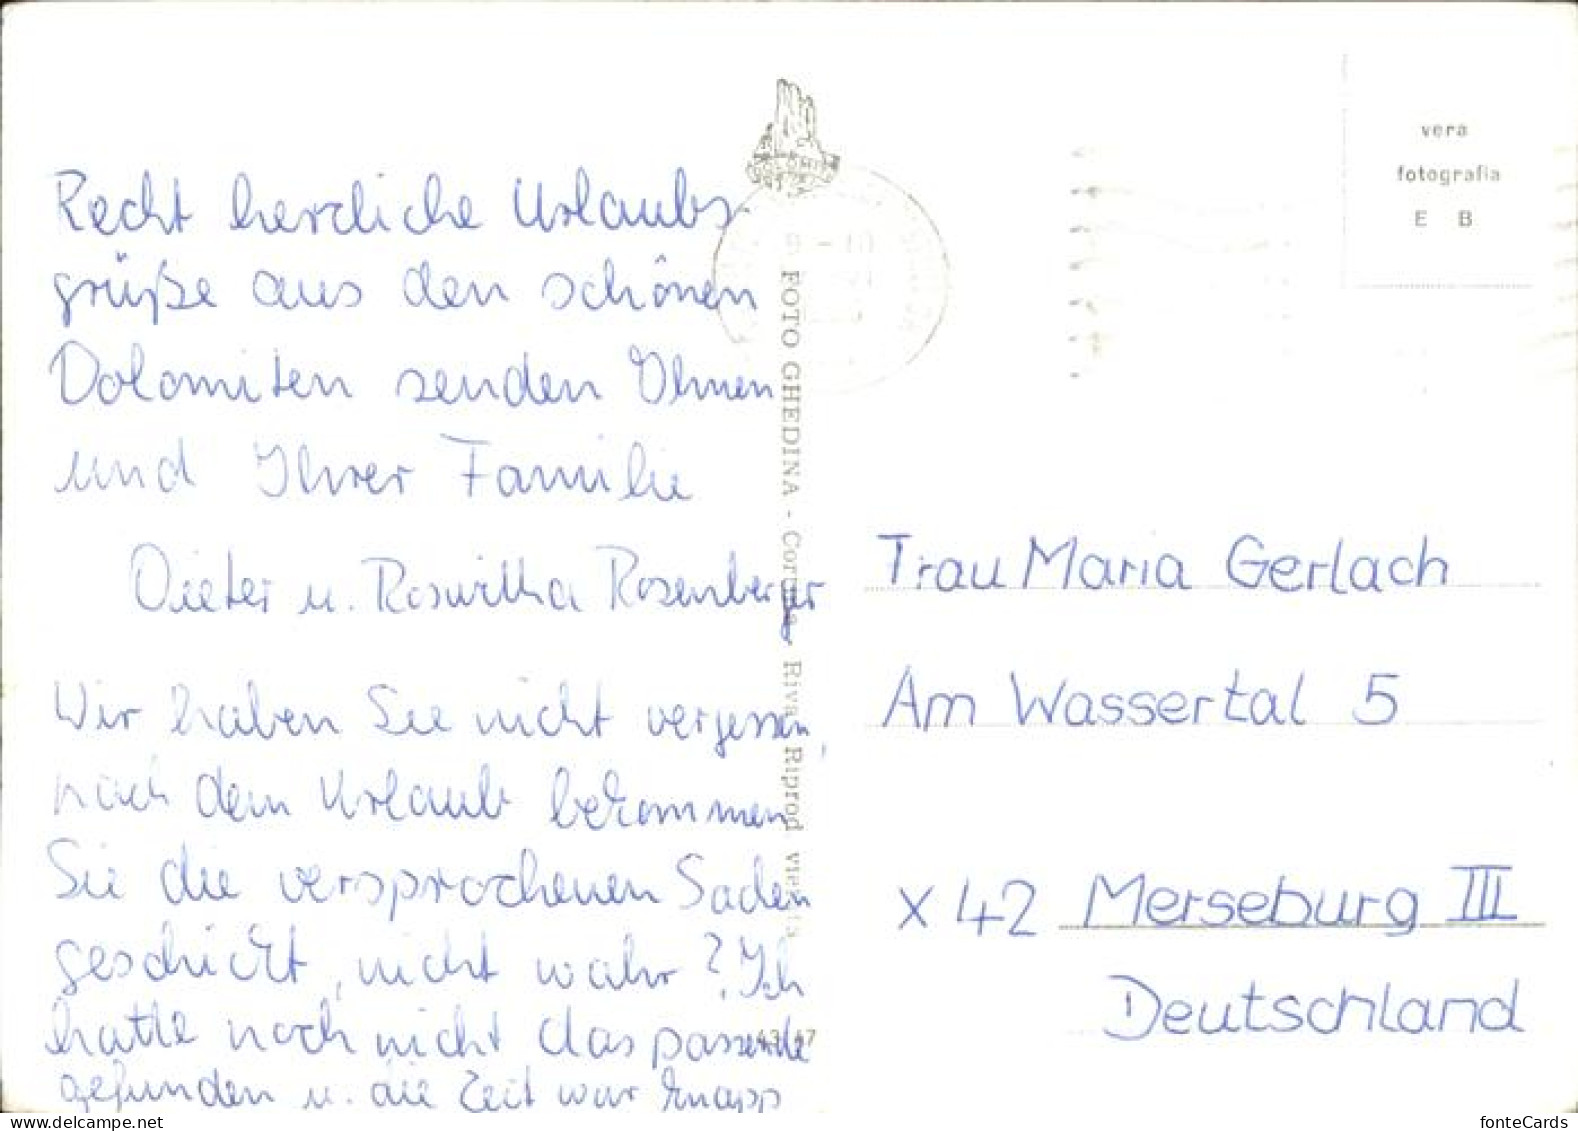 Recht herzliche Urlaubs-
grüße aus den schönen
Dolomiten senden Ihnen
und Ihrer Familie
Dieter u. Roswitha Rosenberger
Wir haben Sie nicht vergessen,
nach dem Urlaub bekommen
Sie die versprochenen Sachen
geschickt, nicht wahr? Ich
hatte noch nicht das passende
gefunden u. die Zeit war knapp
FOTO GHEDINA - Cortina - Riva Riprod vietata
vera
fotografia
E B
Frau Maria Gerlach
Am Wassertal 5
X 42 Merseburg III
Deutschland
fonteCards
www.delcampe.net